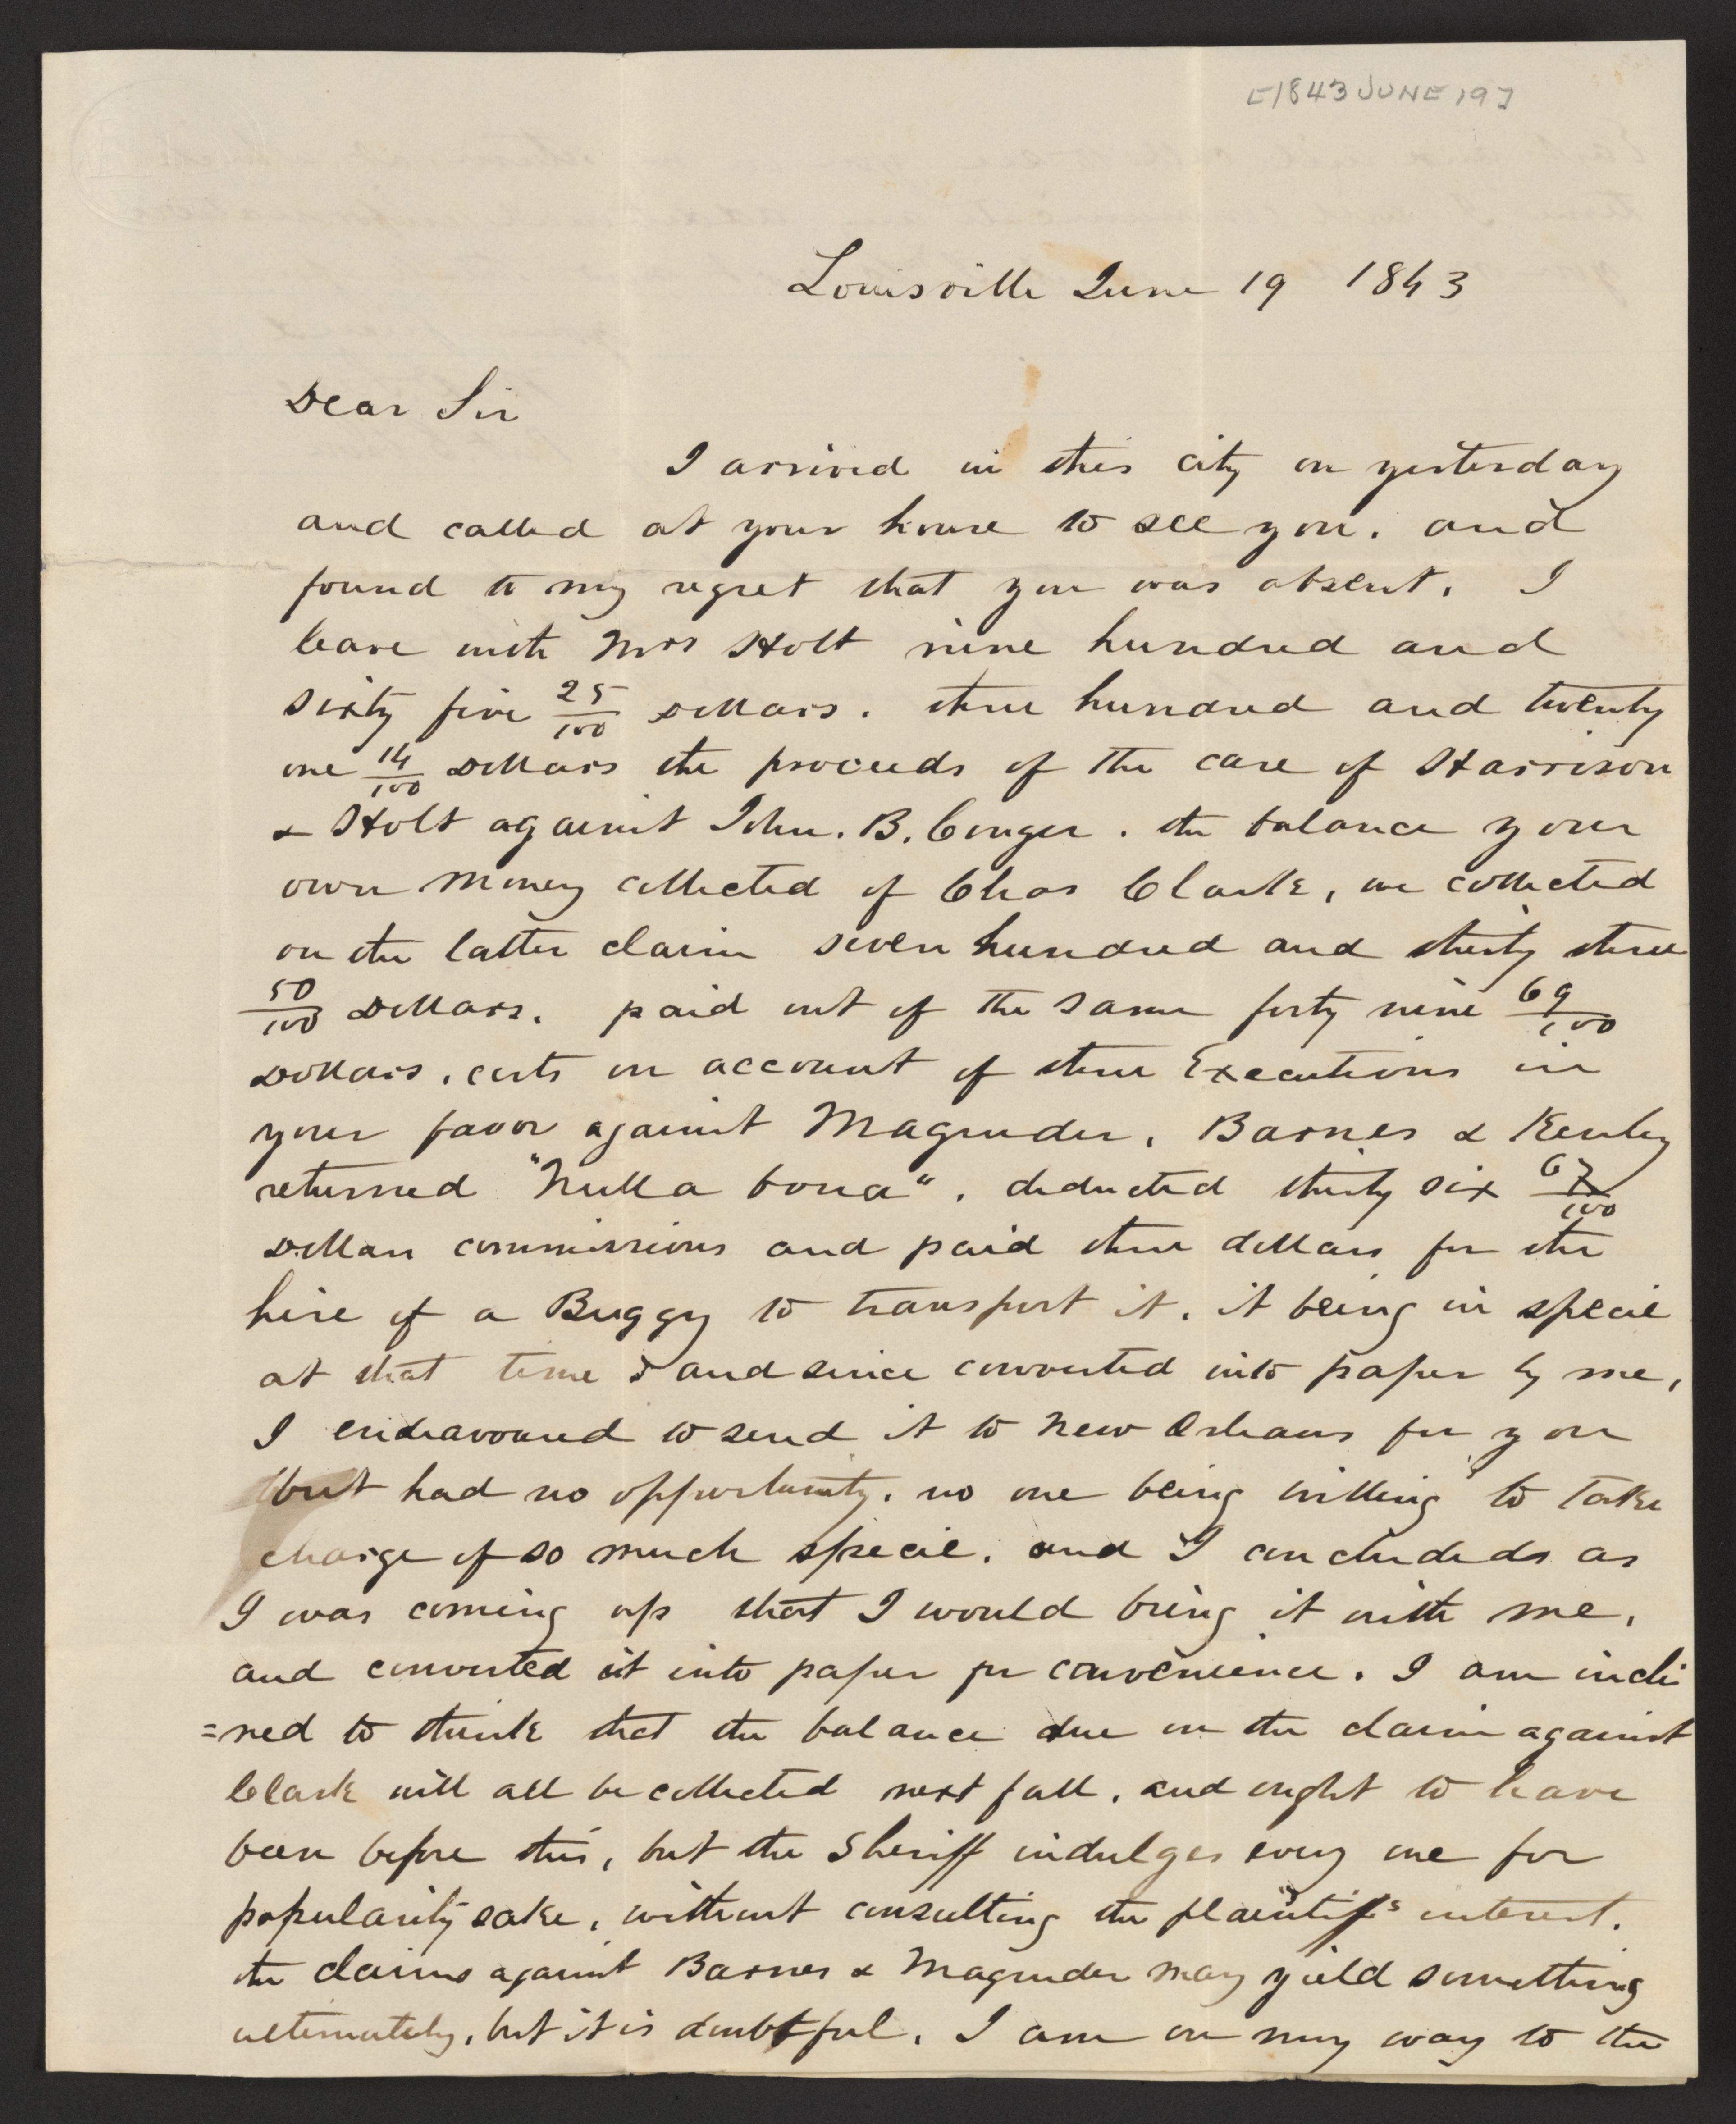 [1843 JUNE 19]
Louisville June 19 1843
Dear Sir
I arrived in this city on yesterday
and called at your house to see you. and
found to my regret that you was absent. I
leave with Mrs Holt nine hundred and
sixty five 25/100 Dollars. three hundred and twenty
one 14/100 Dollars the proceeds of the case of Harrison
& Holt against John. B. Conger. the balance your
own money collected of Chas Clark, we collected
on the latter claim seven hundred and thirty three
50/100 Dollars. paid out of the same forty nine 69/100
Dollars, costs on account of three Executions in
your favor against Magruder, Barnes & Kenley
returned "Nulla bona". deducted thirty six 67/100
Dollars commissions and paid three dollars for the
hire of a Buggy to transport it. it being in specie
at that time & and since converted into paper by me,
I endeavoured to send it to New Orleans for you
but had no opportunity. no one being willing to take
charge of so much specie. and I concluded as
I was coming up that I would bring it with me,
and converted it into paper for convenience. I am incli
=ned to think that the balance due on the claim against
Clark will all be collected next fall, and ought to have
been before this, but the Sheriff indulges every one for
popularity sake, without consulting the plaintiff's interest.
the claims against Barnes & Magruder may yield something
ultimately, but it is doubtful. I am on my way to the